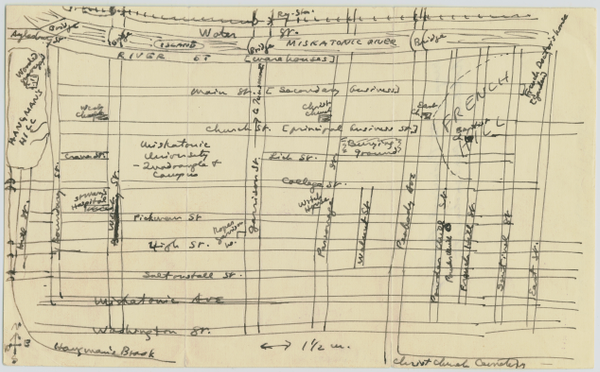 Water St.
Bridge
ISLAND
MISKATONIC RIVER
Bridge
Bridge
RIVER ST [Warehouses]
Main St. [Secondary business]
Church St. [principal business st.]
FRENCH
HILL
HANGMAN'S
HILL
Miskatonic
University
- Quadrangle &
Campus
Lich St.
Burying
Ground
College St.
Crane St.
St Mary's
Hospital
Witch
House
Pickman St
High St.
Saltonstall St.
Miskatonic Ave
Washington St.
Hangman's Brook
1½ m.
Christ Church Cemetery
Boundary St.
Garrison St.
Parsonage St
Walnut St.
Peabody Ave
Powder Mill St.
French Hill St.
Sentinel St
East St.
Christ
Church
Baptist